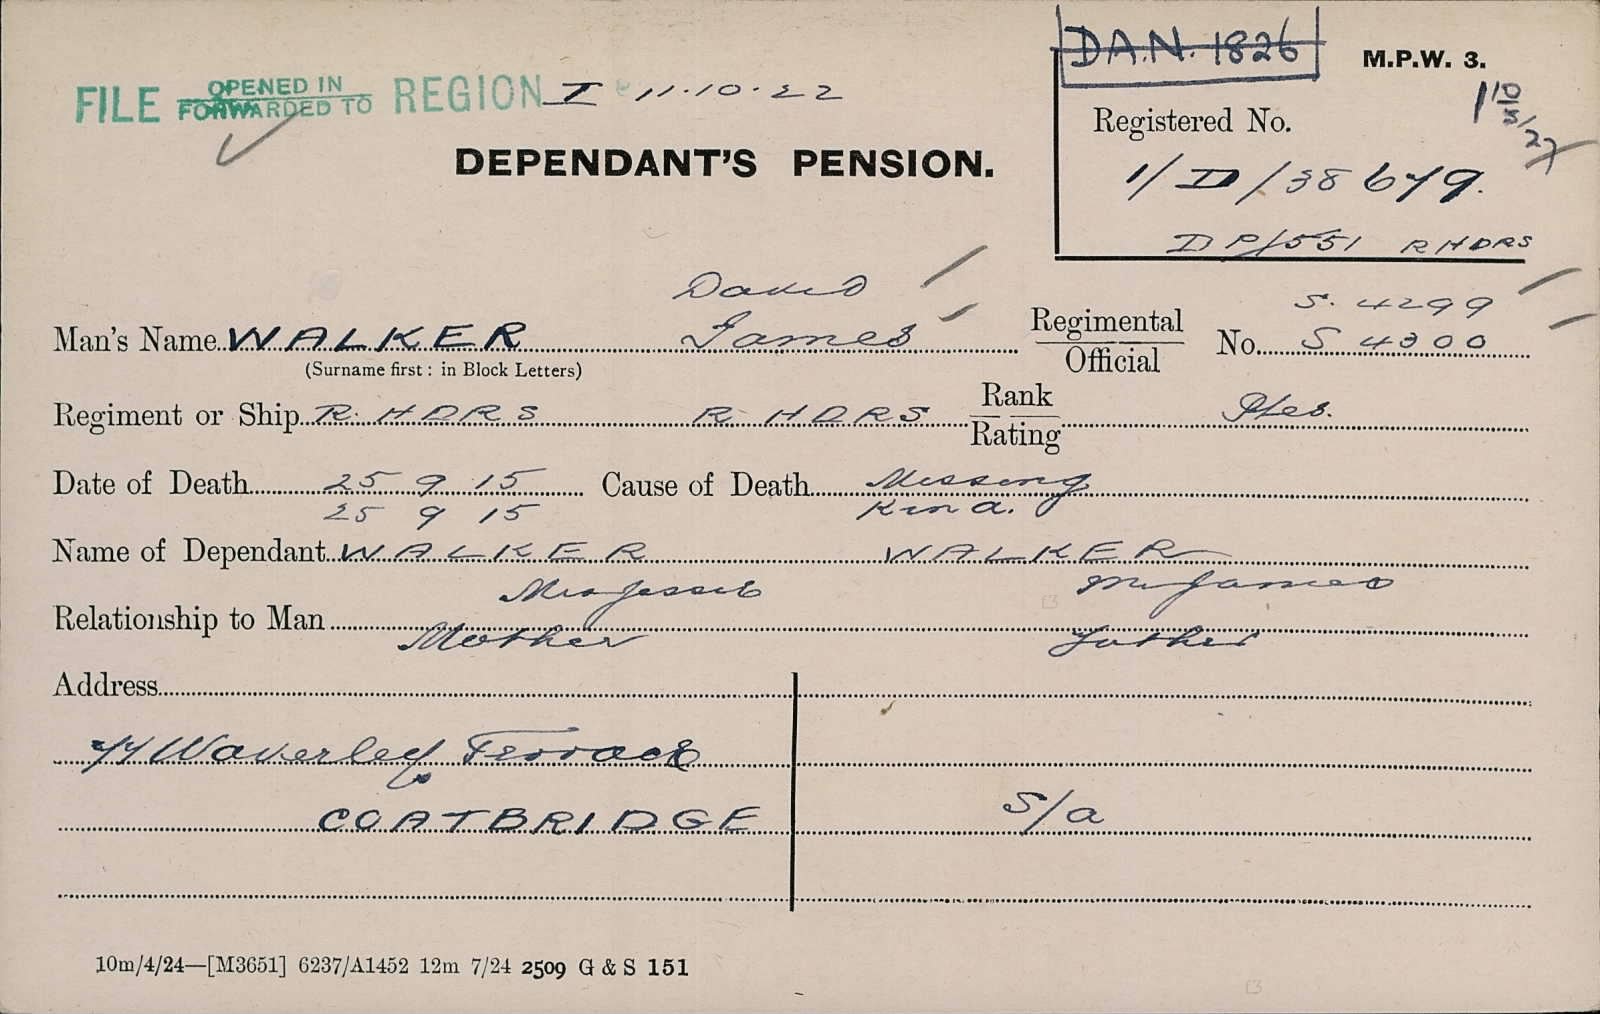 DAN. 1826
M.P.W. 3.
FILE OPENED IN FORWARDED TO REGION I 11.10.22
Registered No.
1/D/38679.
DP/551 RHDRS
DEPENDANT'S PENSION.
David S. 4299
Man's Name WALKER James Regimental Official No. S 4300
(Surname first : in Block Letters)
Regiment or Ship R. HDRS R. HDRS Rank Rating Ptes.
Date of Death 25 9 15 Cause of Death Missing
25 9 15 K in a.
Name of Dependant WALKER WALKER
Mrs Jessie Mr James
Relationship to Man
Mother Father
Address
Waverley Terrace
COATBRIDGE S/a
10m/4/24—[M3651] 6237/A1452 12m 7/24 2509 G & S 151